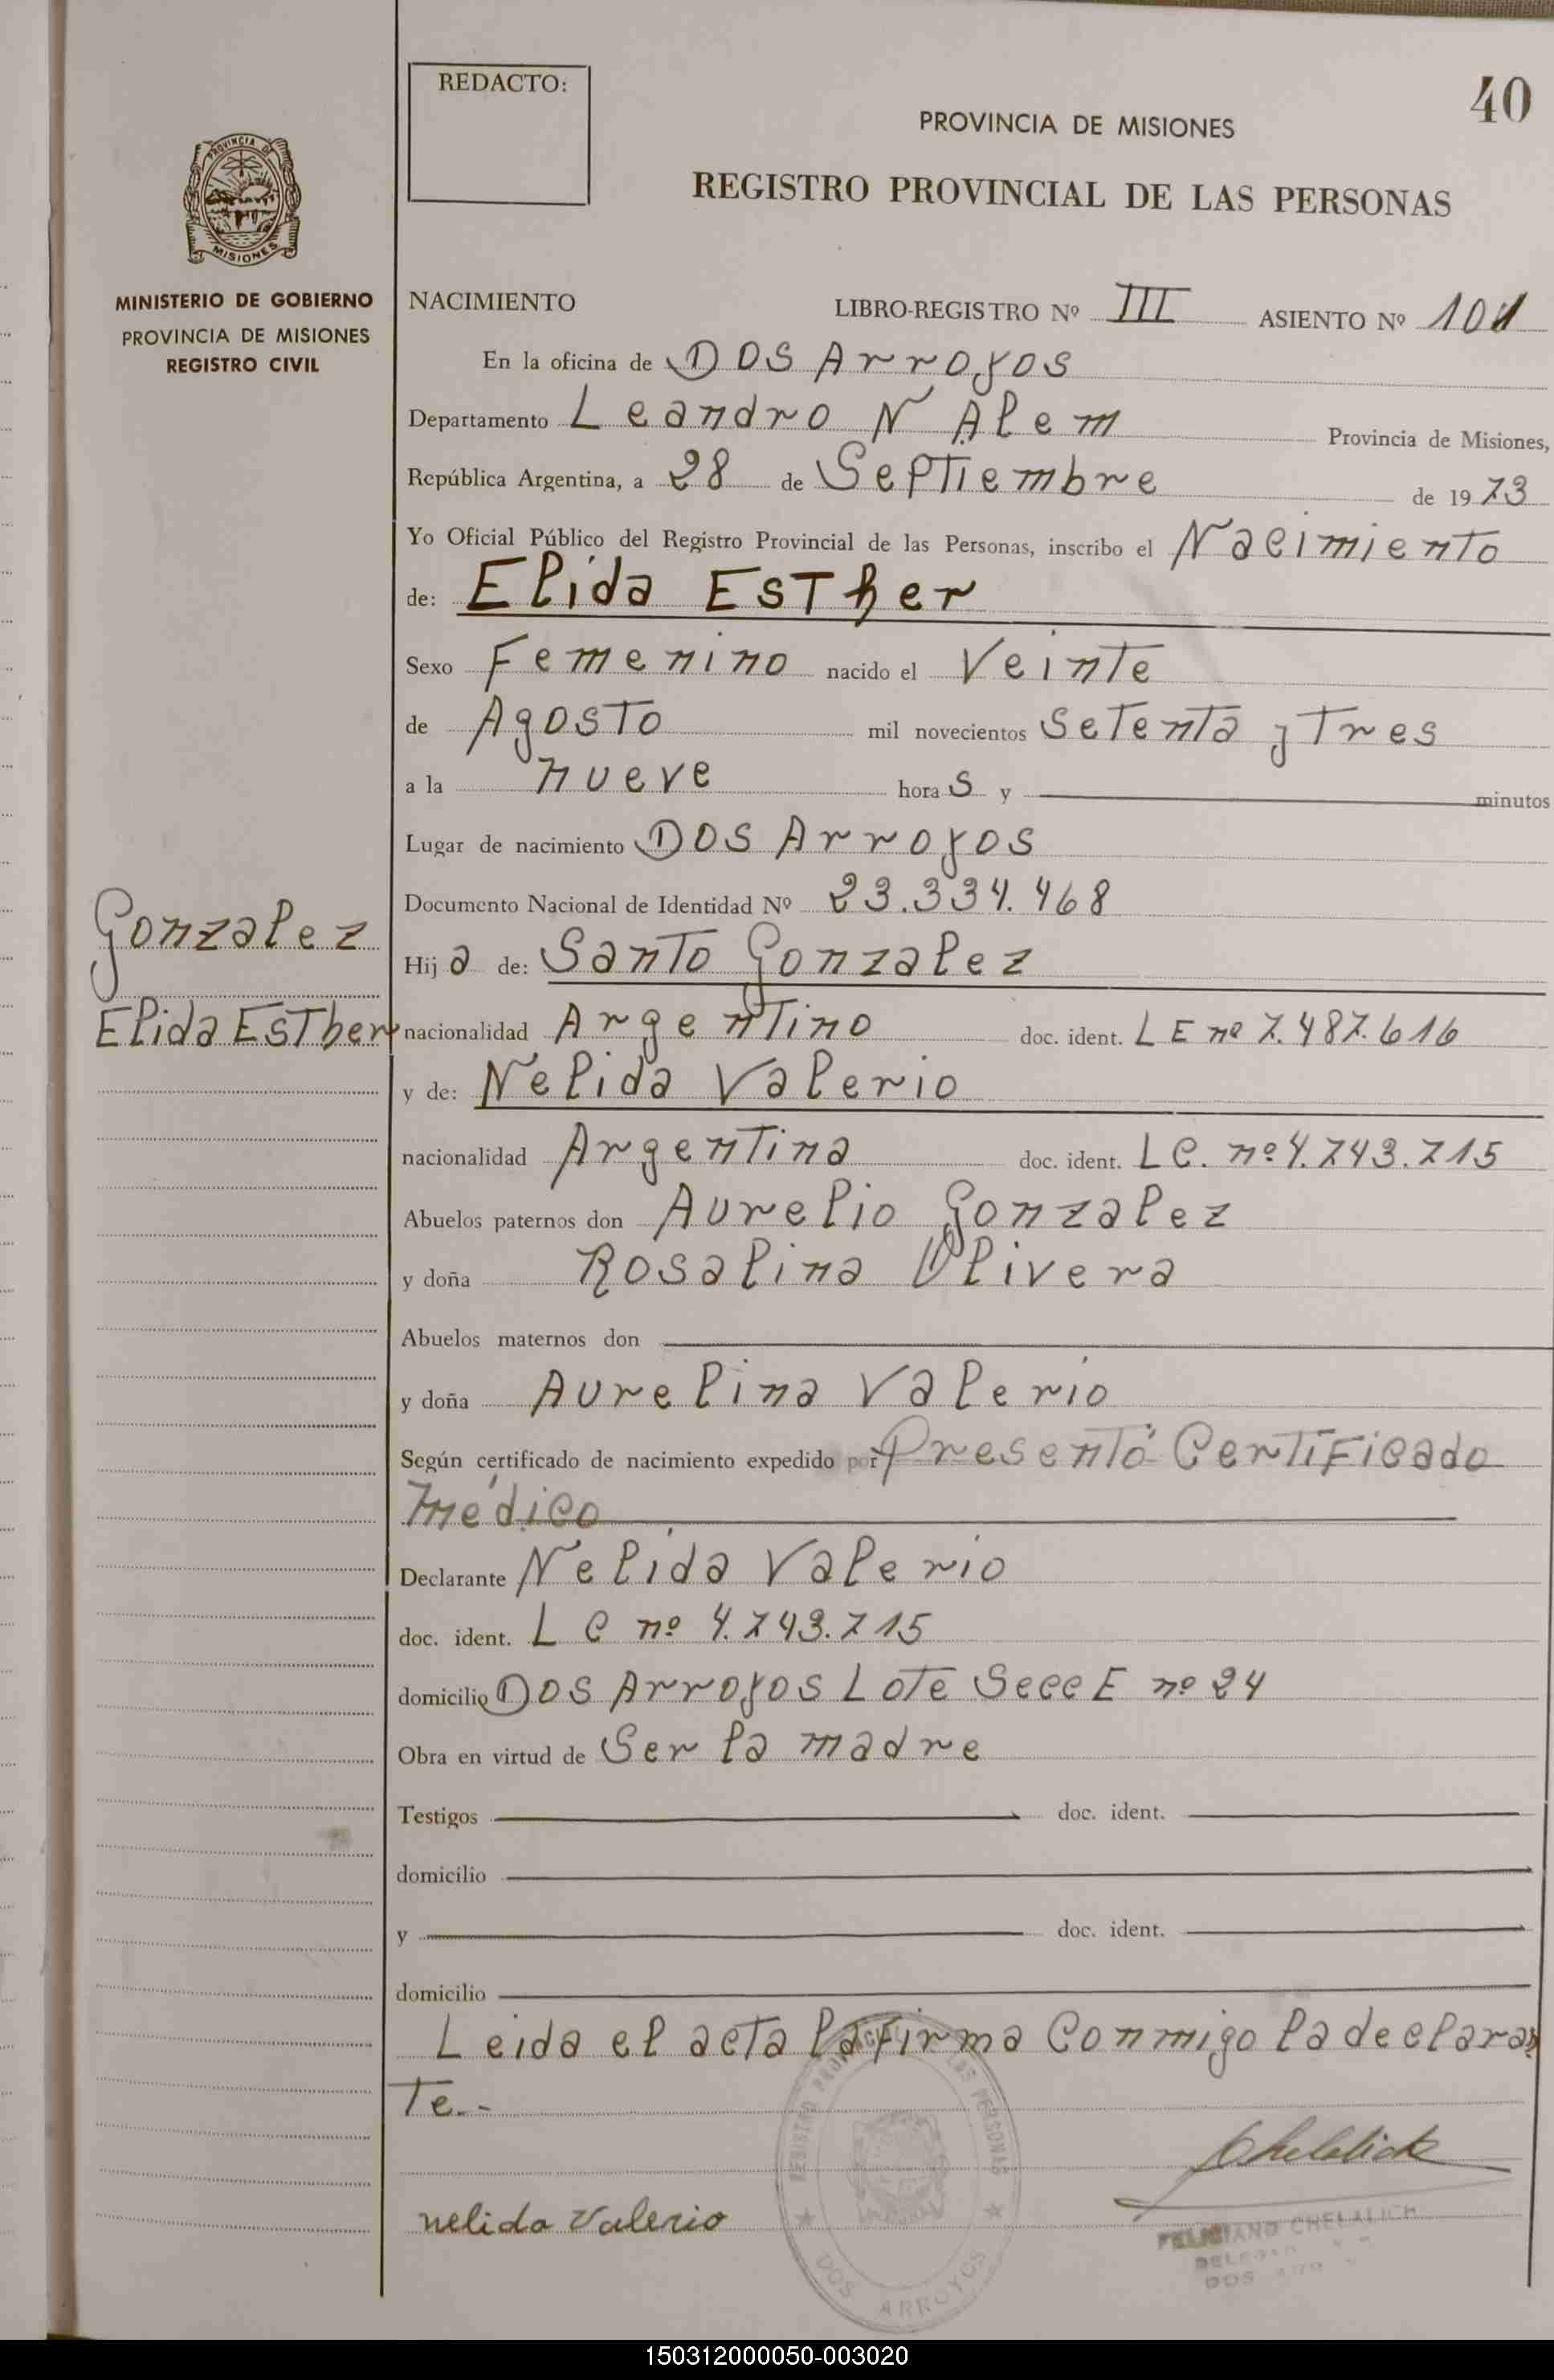 REDACTO:
40
PROVINCIA DE MISIONES
REGISTRO PROVINCIAL DE LAS PERSONAS
PROVINCIA DE
MISIONES
MINISTERIO DE GOBIERNO
PROVINCIA DE MISIONES
REGISTRO CIVIL
NACIMIENTO LIBRO-REGISTRO Nº III ASIENTO Nº 101
En la oficina de DOS Arroyos
Departamento Leandro N Alem Provincia de Misiones,
República Argentina, a 28 de Septiembre de 1973
Yo Oficial Público del Registro Provincial de las Personas, inscribo el Nacimiento
de: Elida Esther
Sexo Femenino nacido el Veinte
de Agosto mil novecientos setenta y Tres
a la nueve horas y minutos
Lugar de nacimiento DOS Arroyos
Documento Nacional de Identidad Nº 23.334.468
Gonzalez
Elida Esther
Hija de: Santo Gonzalez
nacionalidad Argentino doc. ident. L E nº 7.487.616
y de: Nelida Valerio
nacionalidad Argentina doc. ident. L C. nº 4.743.715
Abuelos paternos don Aurelio Gonzalez
y doña Rosalina Olivera
Abuelos maternos don
y doña Aurelina Valerio
Según certificado de nacimiento expedido por Presentó Certificado
médico
Declarante Nelida Valerio
doc. ident. L C nº 4.743.715
domicilio DOS Arroyos Lote Secc E nº 24
Obra en virtud de Ser la madre
Testigos doc. ident.
domicilio
y doc. ident.
domicilio
Leida el acta la firma Conmigo la declaran
Te.-
REGISTRO PROVINCIAL DE LAS PERSONAS
DOS ARROYOS
nelida Valerio
Chelalich
FELICIANO CHELALICH
DOS
150312000050-003020